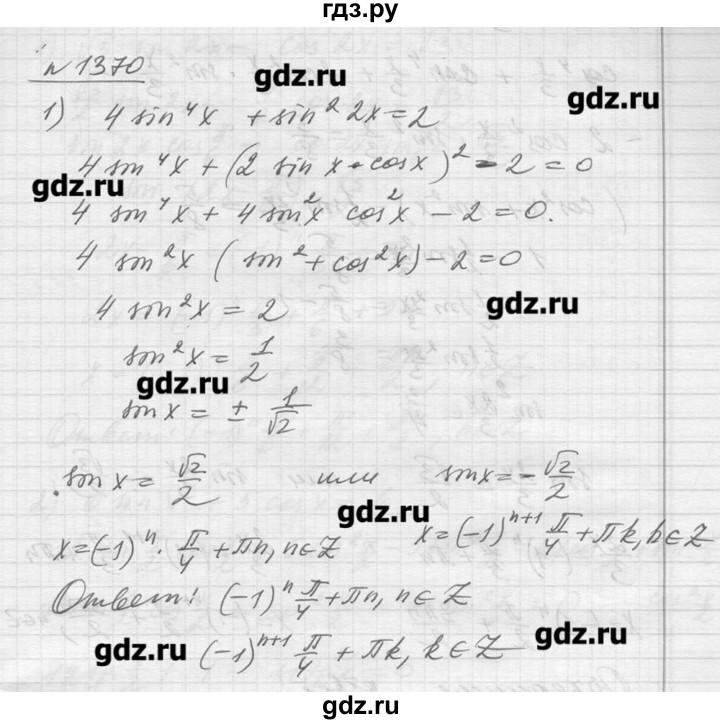 гдз.ру
№ 1370
gdz.ru
gdz.ru
1) 4 sin⁴x + sin² 2x = 2
4 sin⁴x + (2 sin x · cos x)² - 2 = 0
gdz.ru
4 sin⁴x + 4 sin²x cos²x - 2 = 0.
4 sin²x (sin² + cos²x) - 2 = 0
4 sin²x = 2
gdz.ru
sin²x = 1/2
gdz.ru
sin x = ± 1/√2
sin x = √2/2 или sin x = - √2/2
gdz.ru
x = (-1)ⁿ · π/4 + πn, n ∈ Z x = (-1)ⁿ⁺¹ π/4 + πk, k ∈ Z
Ответ: (-1)ⁿ π/4 + πn, n ∈ Z
gdz.ru
(-1)ⁿ⁺¹ π/4 + πk, k ∈ Z
gdz.ru
gdz.ru